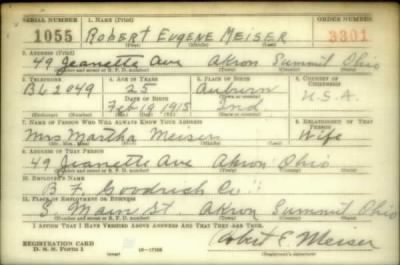 SERIAL NUMBER 1. NAME (Print) ORDER NUMBER
1055 ROBERT EUGENE MEISER 3301
(First) (Middle) (Last)
2. ADDRESS (Print)
49 Jeanette Ave Akron Summit Ohio
3. TELEPHONE 4. AGE IN YEARS 5. PLACE OF BIRTH 6. COUNTRY OF CITIZENSHIP
BL 2049 25 Auburn
DATE OF BIRTH
Feb 19 1915 Ind U.S.A.
7. NAME OF PERSON WHO WILL ALWAYS KNOW YOUR ADDRESS 8. RELATIONSHIP OF THAT PERSON
Mrs Martha Meiser Wife
9. ADDRESS OF THAT PERSON
49 Jeanette Ave Akron Ohio
10. EMPLOYER'S NAME
B F Goodrich Co
11. PLACE OF EMPLOYMENT OR BUSINESS
S. Main St. Akron Summit Ohio
I AFFIRM THAT I HAVE VERIFIED ABOVE ANSWERS AND THAT THEY ARE TRUE.
REGISTRATION CARD
D. S. S. Form 1
Robert E. Meiser